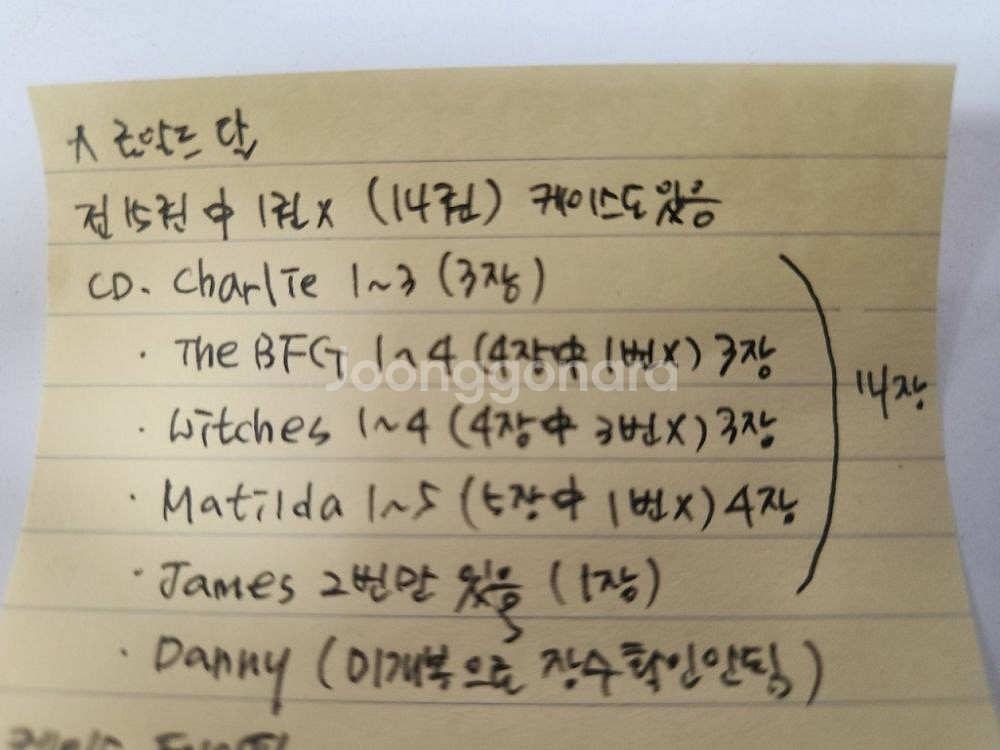 * 로알드 달
전 15권 中 1권 X (14권) 케이스도 있음
CD. Charlie 1~3 (3장)
· The BFG 1~4 (4장中 1번X) 3장
· Witches 1~4 (4장中 3번X) 3장
· Matilda 1~5 (5장中 1번X) 4장
· James 2번만 있음 (1장)
14장
· Danny (미개봉으로 장수확인안됨)
Joonggonara